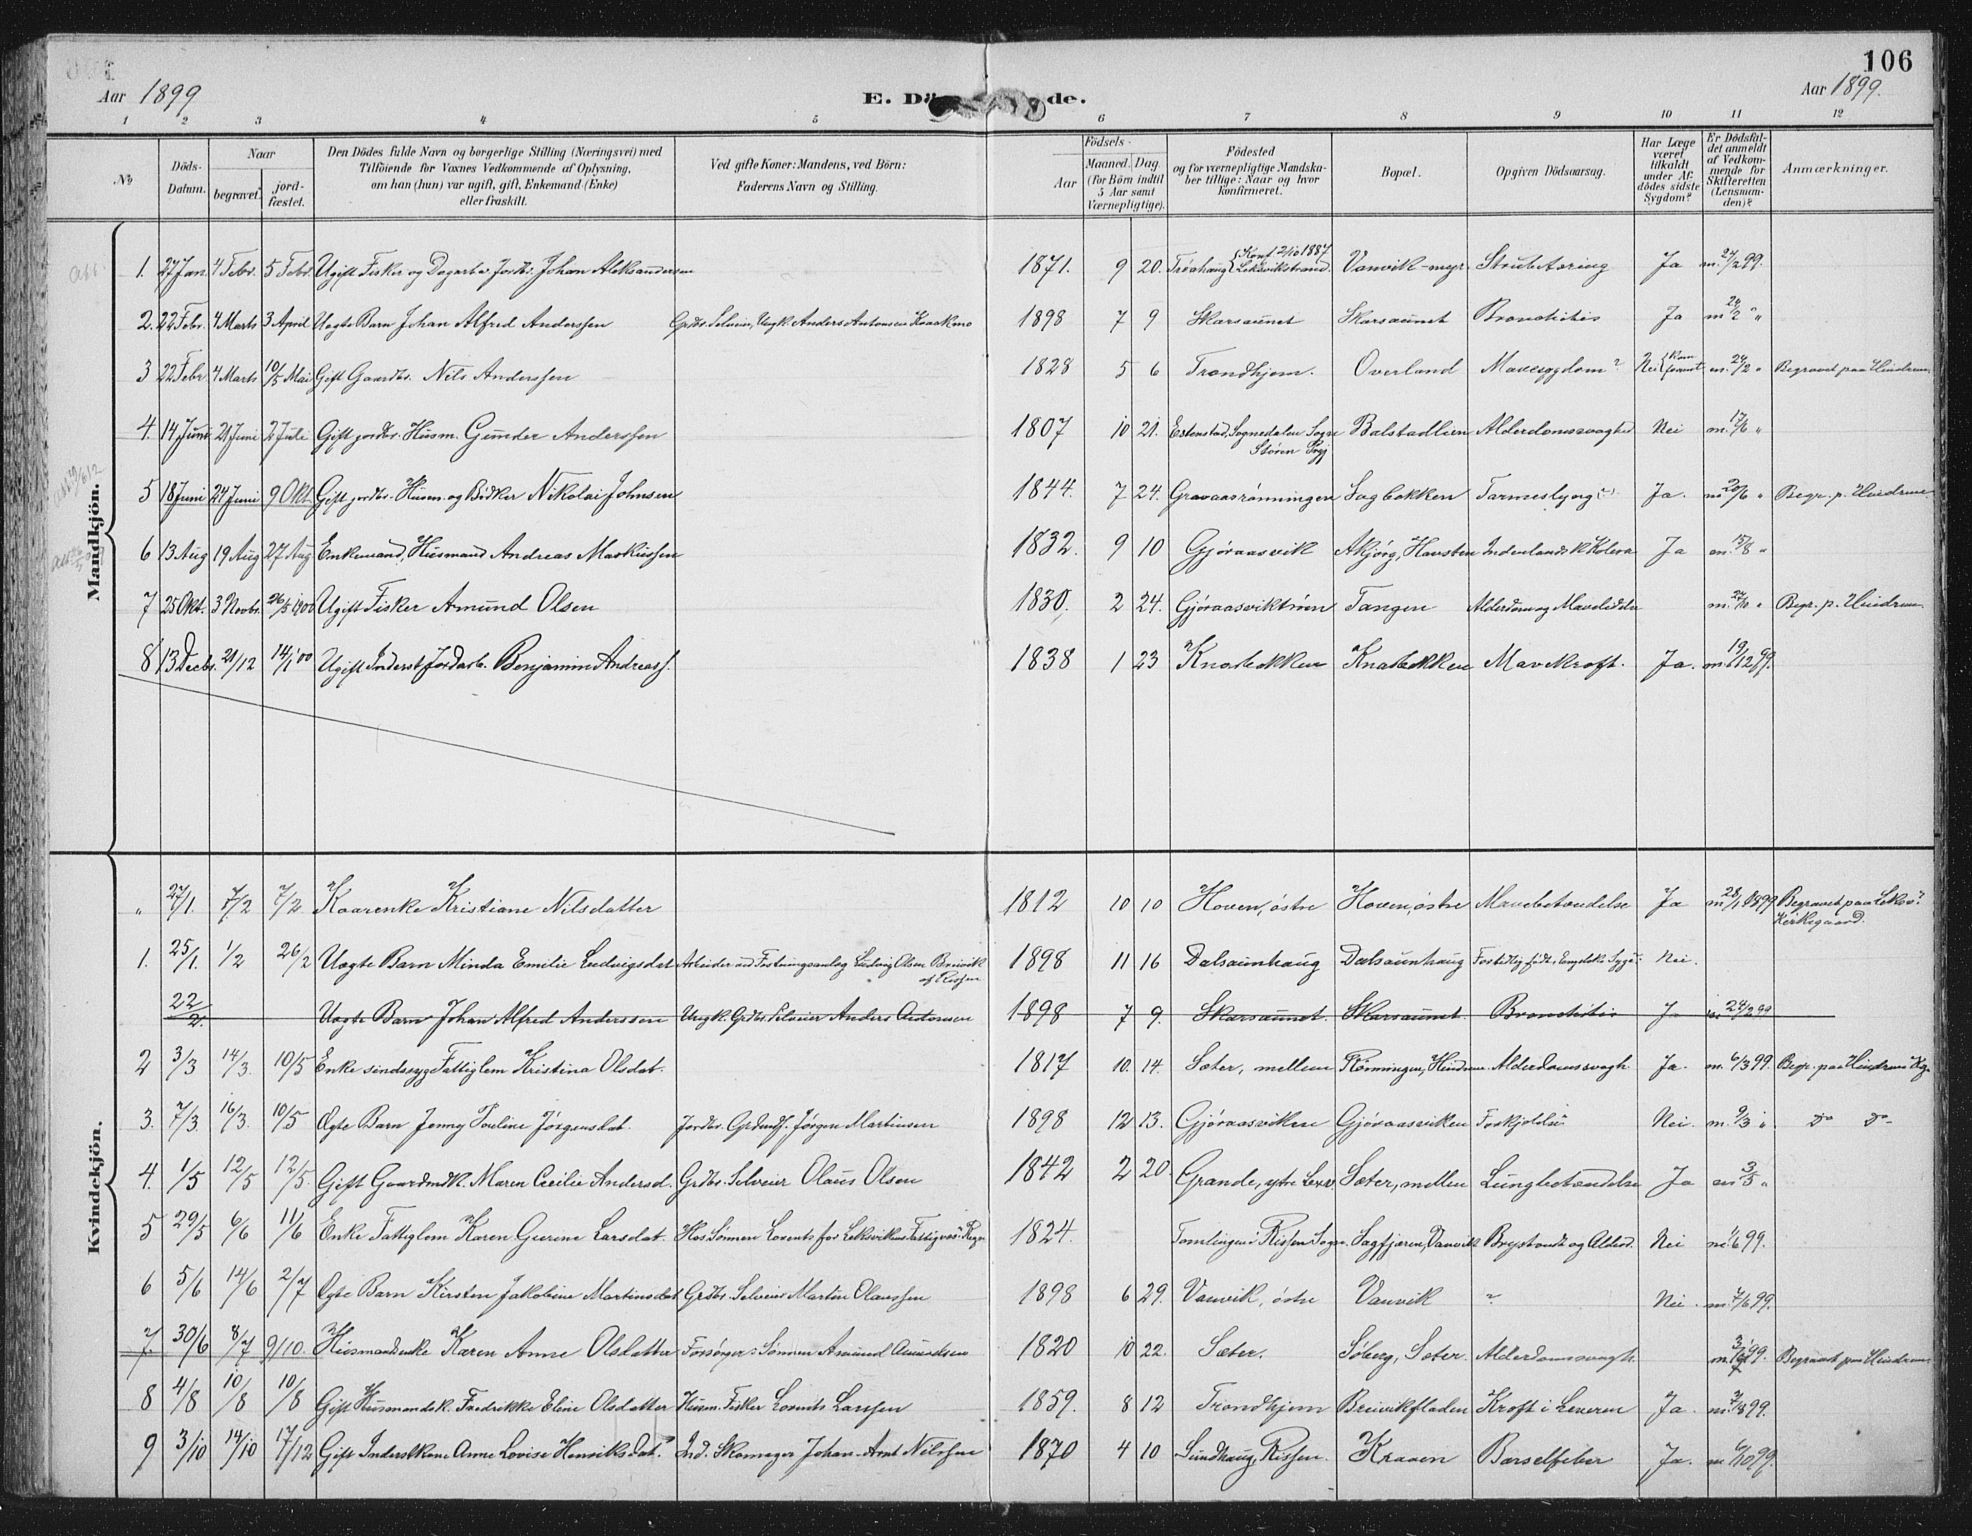 106
Aar 1899
E. Dö de.
Aar 1899.
1 2 3 4 5 6 7 8 9 10 11 12
No
Döds-Datum.
Naar
begravet.
jord-fæstet.
Den Dödes fulde Navn og borgerlige Stilling (Næringsvei) med
Tilföiende for Voxnes Vedkommende af Oplysning,
om han (hun) var ugift, gift, Enkemand (Enke)
eller fraskilt.
Ved gifte Koner: Mandens, ved Börn:
Faderens Navn og Stilling.
Födsels-
Aar
Maaned. Dag.
(for Børn indtil
5 Aar samt
Værnepligtige).
Födested
og for værnepligtige Mandska-
ber tillige: Naar og hvor
konfirmeret.
Bopæl.
Opgiven Dödsaarsag.
Har Læge
været
tilkaldt
under Af-
dödes sidste
Sygdom?
Er Dødsfal-
det anmeldt
af Vedkom-
mende for
Skifteretten
(Lensman-
den)?
Anmærkninger.
Mandkjön.
1. 27 Jan. 4 Febr. 5 Febr. Ugift Fisker og Dagarb. Johan Aleksandersen 1871. 9 20. Trøahaug {Konf 2/10 1887 Leksvikstrand Vanvik-myr. Strubetæring Ja m. 27/2 99.
2. 22 Febr. 4 Marts 3 April Uægte Barn Johan Alfred Anderssen Grdbr. Selveier, Ungk. Anders Antonsen 1898 7 9 Skarsaunet Skarsaunet Bronchitis Ja m 24/2 "
3 22 Febr. 4 Marts 10/5 Mai Gift Gaardbr. Nils Anderssen 1828 5 6 Trondhjem. Overland Mavesygdom? Nei m. 24/2 " Begravet paa Hindrem.
4. 14 Juni 21 Juni 2 Juli Gift jordbr. Husm. Gunder Anderssen 1807 10 21. Estenstad, Sognedalen Sogn Støren Prgj Balstadlien Alderdomssvaghed Nei m. 17/6 "
5 18 Juni 24 Juni 9 Okt. Gift jordbr. Husm. og Bödker Nikolai Johnsen 1844. 7 24. Gravaasrønningen Sagbakken Ja. m 20/6 " Begr. p. Hindrem
6 13 Aug 19 Aug 27 Aug Enkemand, Husmand Andreas Markussen 1832. 9 10 Gjøraasvik Akjørg, Havsten Indenlandsk Kolera Ja m. 15/8 "
7 25 Okt. 3 Novbr. 26/5 1900 Ugift Fisker Amund Olsen 1830, 2 24. Gjøraasviktrøen Tangen Alderdom og Mavelidelse Begr. p. Hindrem.
8 13 Decbr. 21/12 14/1 '00 Ugift Inderst Jordarb. Benjamin Andreass. 1838 1 23 Knabakken Knabakken Mavekræft. Ja. m. 19/12 99.
Kvindekjön.
" 27/1. 7/2 7/2 Kaarenke Kristiane Nilsdatter 1812 10 10 Hoven, østre Hoven, østre Mavebetændelse Ja m 28/1 1899 Begravet paa Leksv. Kirkegaard.
1. 25/1. 1/2 26/2 Uægte Barn Minda Emilie Ludvigsdat. Arbeider ved Fæstningsanlæg Ludvig Olsen Breivik af Rissen 1898 11 16 Dalsaunhaug Dalsaunhaug Nei.
22/2. Uægte Barn Johan Alfred Anderssen Ungk. Grdbr. Selveier Anders Antonsen 1898 7 9. Skarsaunet. Skarsaunet. Bronchitis Ja m. 24/2 99
2 3/3 14/3. 10/5 Enke sindssyg Fattiglem Kristina Olsdat. 1817 10. 14. Sæter, mellem Rönningen, Hindrem. Alderdomssvagh. Ja. m. 6/3 99. Begr. paa Hindrem Kg.
3. 7/3. 16/3. 10/5 Ægte Barn Jenny Pauline Jørgensdat. Jørgen Martinsen 1898 12 13. Gjøraasviken Gjøraasviken Nei. m. 9/3 " do do
4. 1/5 12/5 12/5. Gift Gaardmdk. Maren Cecilie Andersd. Grdbr. Selveier Olaus Olsen 1842 2 20. Grande, ytre Sæter, mellem Lungbetændelse Ja m 3/5 "
5 29/5 6/6 11/6 Enke Fattiglem Karen Gurine Larsdat. Hos Sønnen Lorents for Leksvikens Fattigvæs. Regn. 1824. Tomlingen i Rissen Sogn. Sagfjæren, Vanvik Nei m. 1/6 99.
6 5/6 14/6 2/7 Ægte Barn Kirsten Jakobine Martinsdat. Grdbr. Selveier Martin Olaussen 1898 6 29. Vanvik, østre Vanvik ? Nei. m. 7/6 99.
7. 30/6 8/7 9/10. Husmandsenke Karen Anne Olsdatter Forsørger: Sønnen Amund Amundsen 1820 10 22. Sæter. Søberg, Sæter. Alderdomssvagh. Begravet paa Hindrem
8 4/8 10/8 10/8 Gift Husmandsk. Fredrikke Eline Olsdatter Husm. Fisker Lorents Larssen 1859. 8 12 Trondhjem Breivikfladen Kræft i Leveren Ja. m. 7/8 99.
9 3/10 14/10 17/12 Gift Inderstkone Anne Lovise Henriksdat. Ind. Skomager Johan Arnt Nilssen 1870 4 10 Sundhaug, Rissen. Kraaen Barselfeber Ja. m 6/10 99.